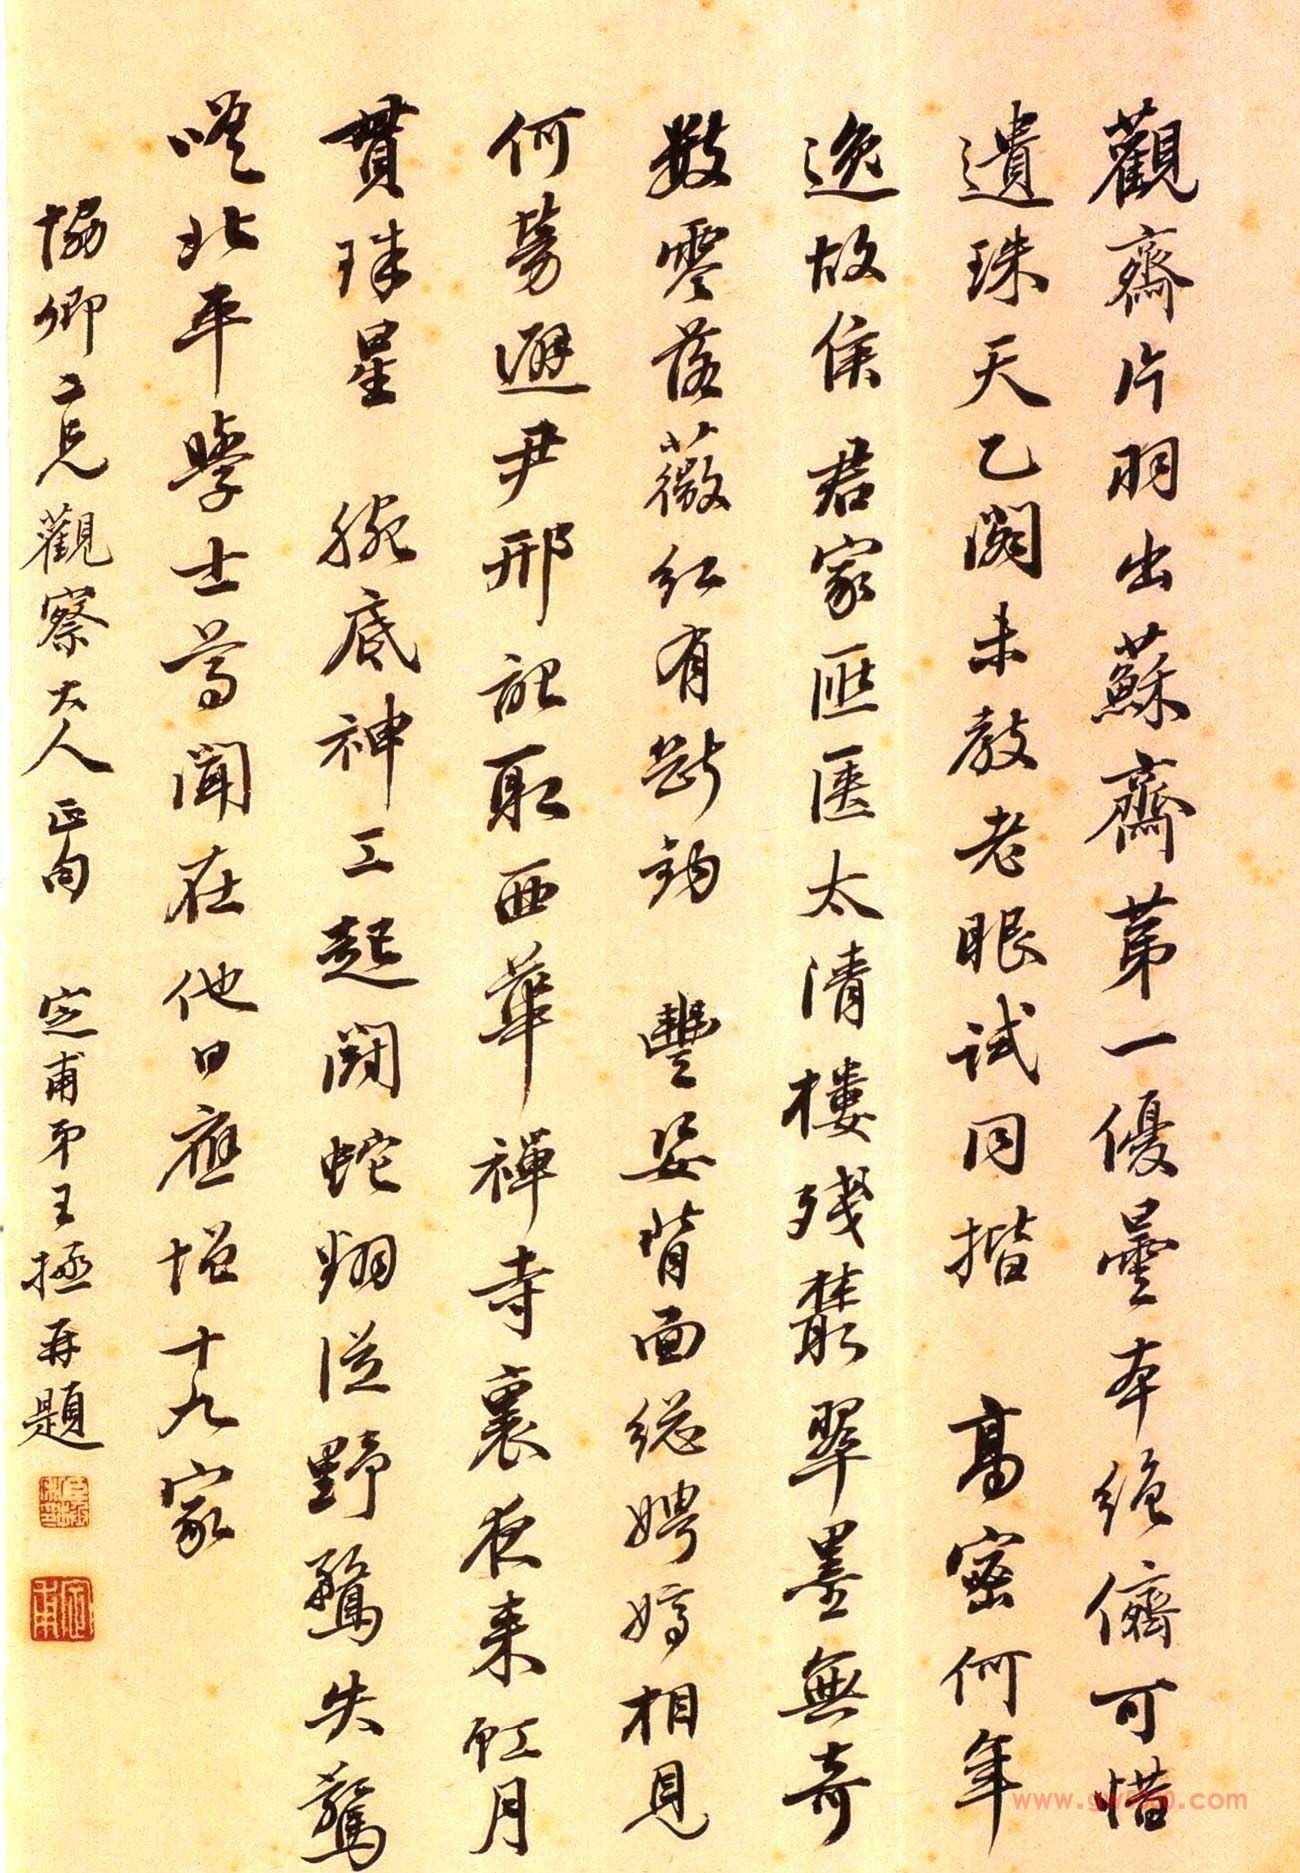 觀齋片羽出蘇齋苐一優曇本絕儕可惜
遺珠天乙閣未教老眼試同揩 高密何年
逸故侯君家匧太清樓殘叢翠墨無奇
數零落薇紅有斷鉤 豐姿背面總娉婷相見
何勞避尹邢記取西華禪寺裏夜來虹月
貫珠星 腕底神工起鬪蛇翔從野鶩失驚
嗟北平學士蓦聞在他日應增十九家
協卿二兄觀察大人正句 定甫弟王拯再題
定甫
www.
.com